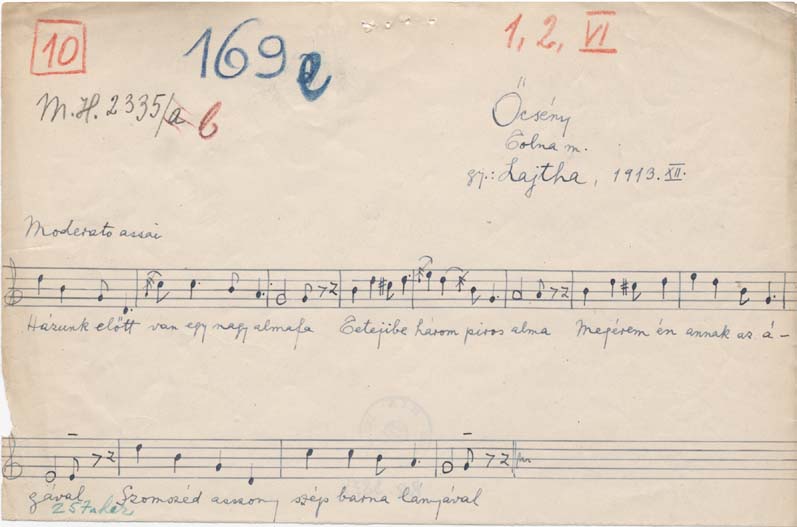 10
169e
1, 2, VI
M.H. 2335/a b
Őcsény
Tolna m.
gy.: Lajtha, 1913. XII.
Moderato assai
Házunk előtt van egy nagy almafa Tetejibe három piros alma Megérem én annak az á-
gával Szomszéd asszony szép barna lányával